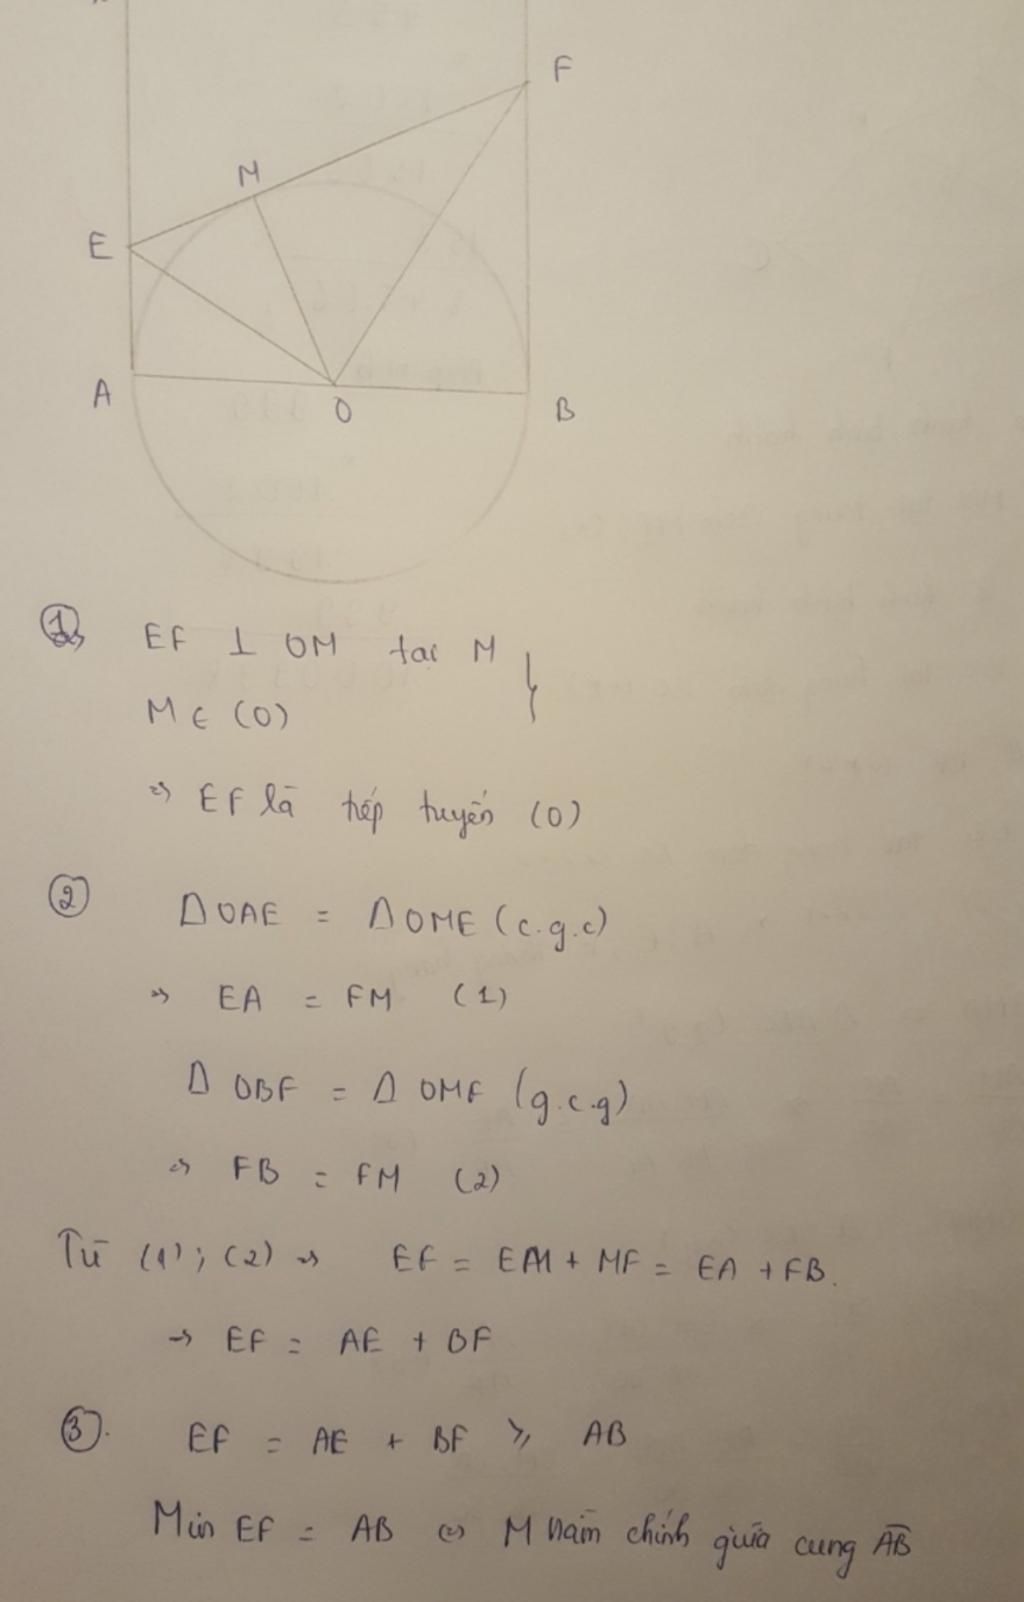 F
M
E
A
O
B
① EF ⊥ OM tại M }
M ∈ (O)
=> EF là tiếp tuyến (O)
② Δ OAE = Δ OME (c.g.c)
=> EA = FM (1)
Δ OBF = Δ OMF (g.c.g)
=> FB = FM (2)
Từ (1); (2) => EF = EM + MF = EA + FB.
=> EF = AE + BF
③. EF = AE + BF ⩾ AB
Min EF = AB <=> M nằm chính giữa cung AB